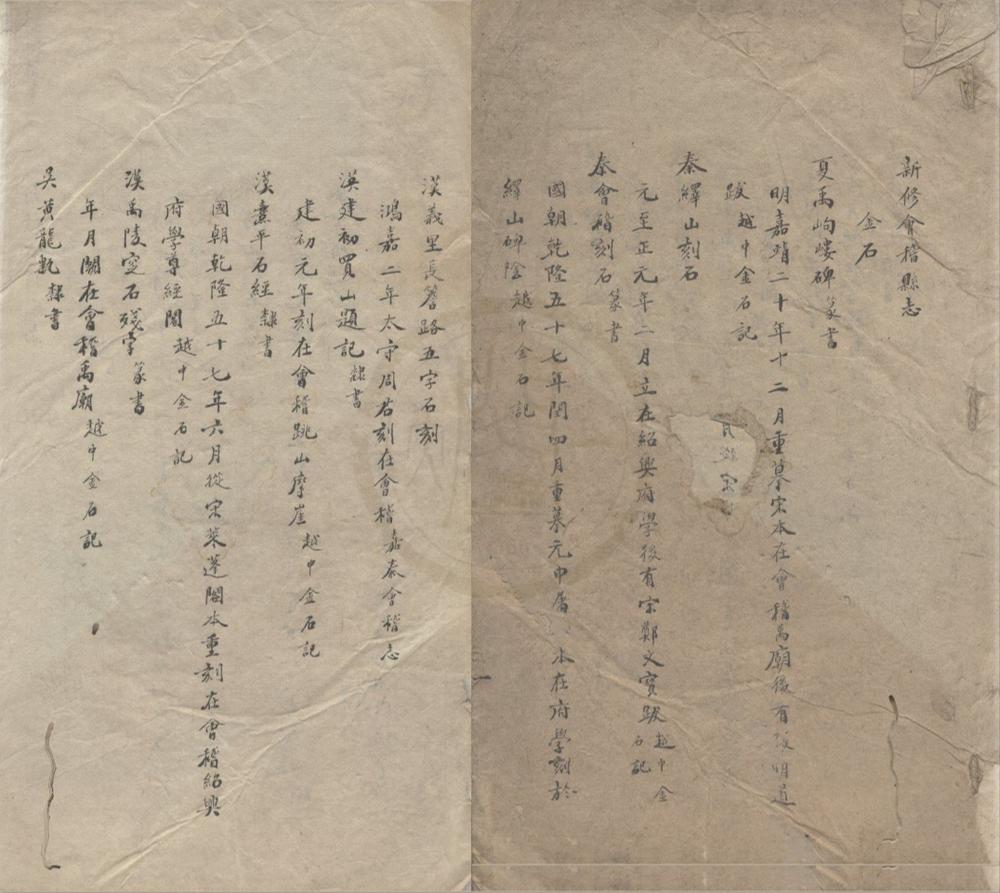 新修會稽縣志
金石
夏禹岣嶁碑 篆書
明嘉靖二十年十二月重摹宋本在會稽禹廟後有張明道
跋 越中金石記
秦繹山刻石
元至正元年二月立在紹興府學後有宋鄭文寳跋 越中金石記
秦會稽刻石 篆書
國朝乾隆五十七年閏四月重摹元申屠 本在府學刻於
繹山碑陰 越中金石記
漢義里長簪路五字石刻
鴻嘉二年太守周君刻在會稽 嘉泰會稽志
漢建初買山題記 隸書
建初元年刻在會稽跳山摩崖 越中金石記
漢熹平石經 隸書
國朝乾隆五十七年六月從宋萊蓬閣本重刻在會稽紹興
府學尊經閣 越中金石記
漢禹陵窆石殘字 篆書
年月闕在會稽禹廟 越中金石記
吳黃龍甎 隸書